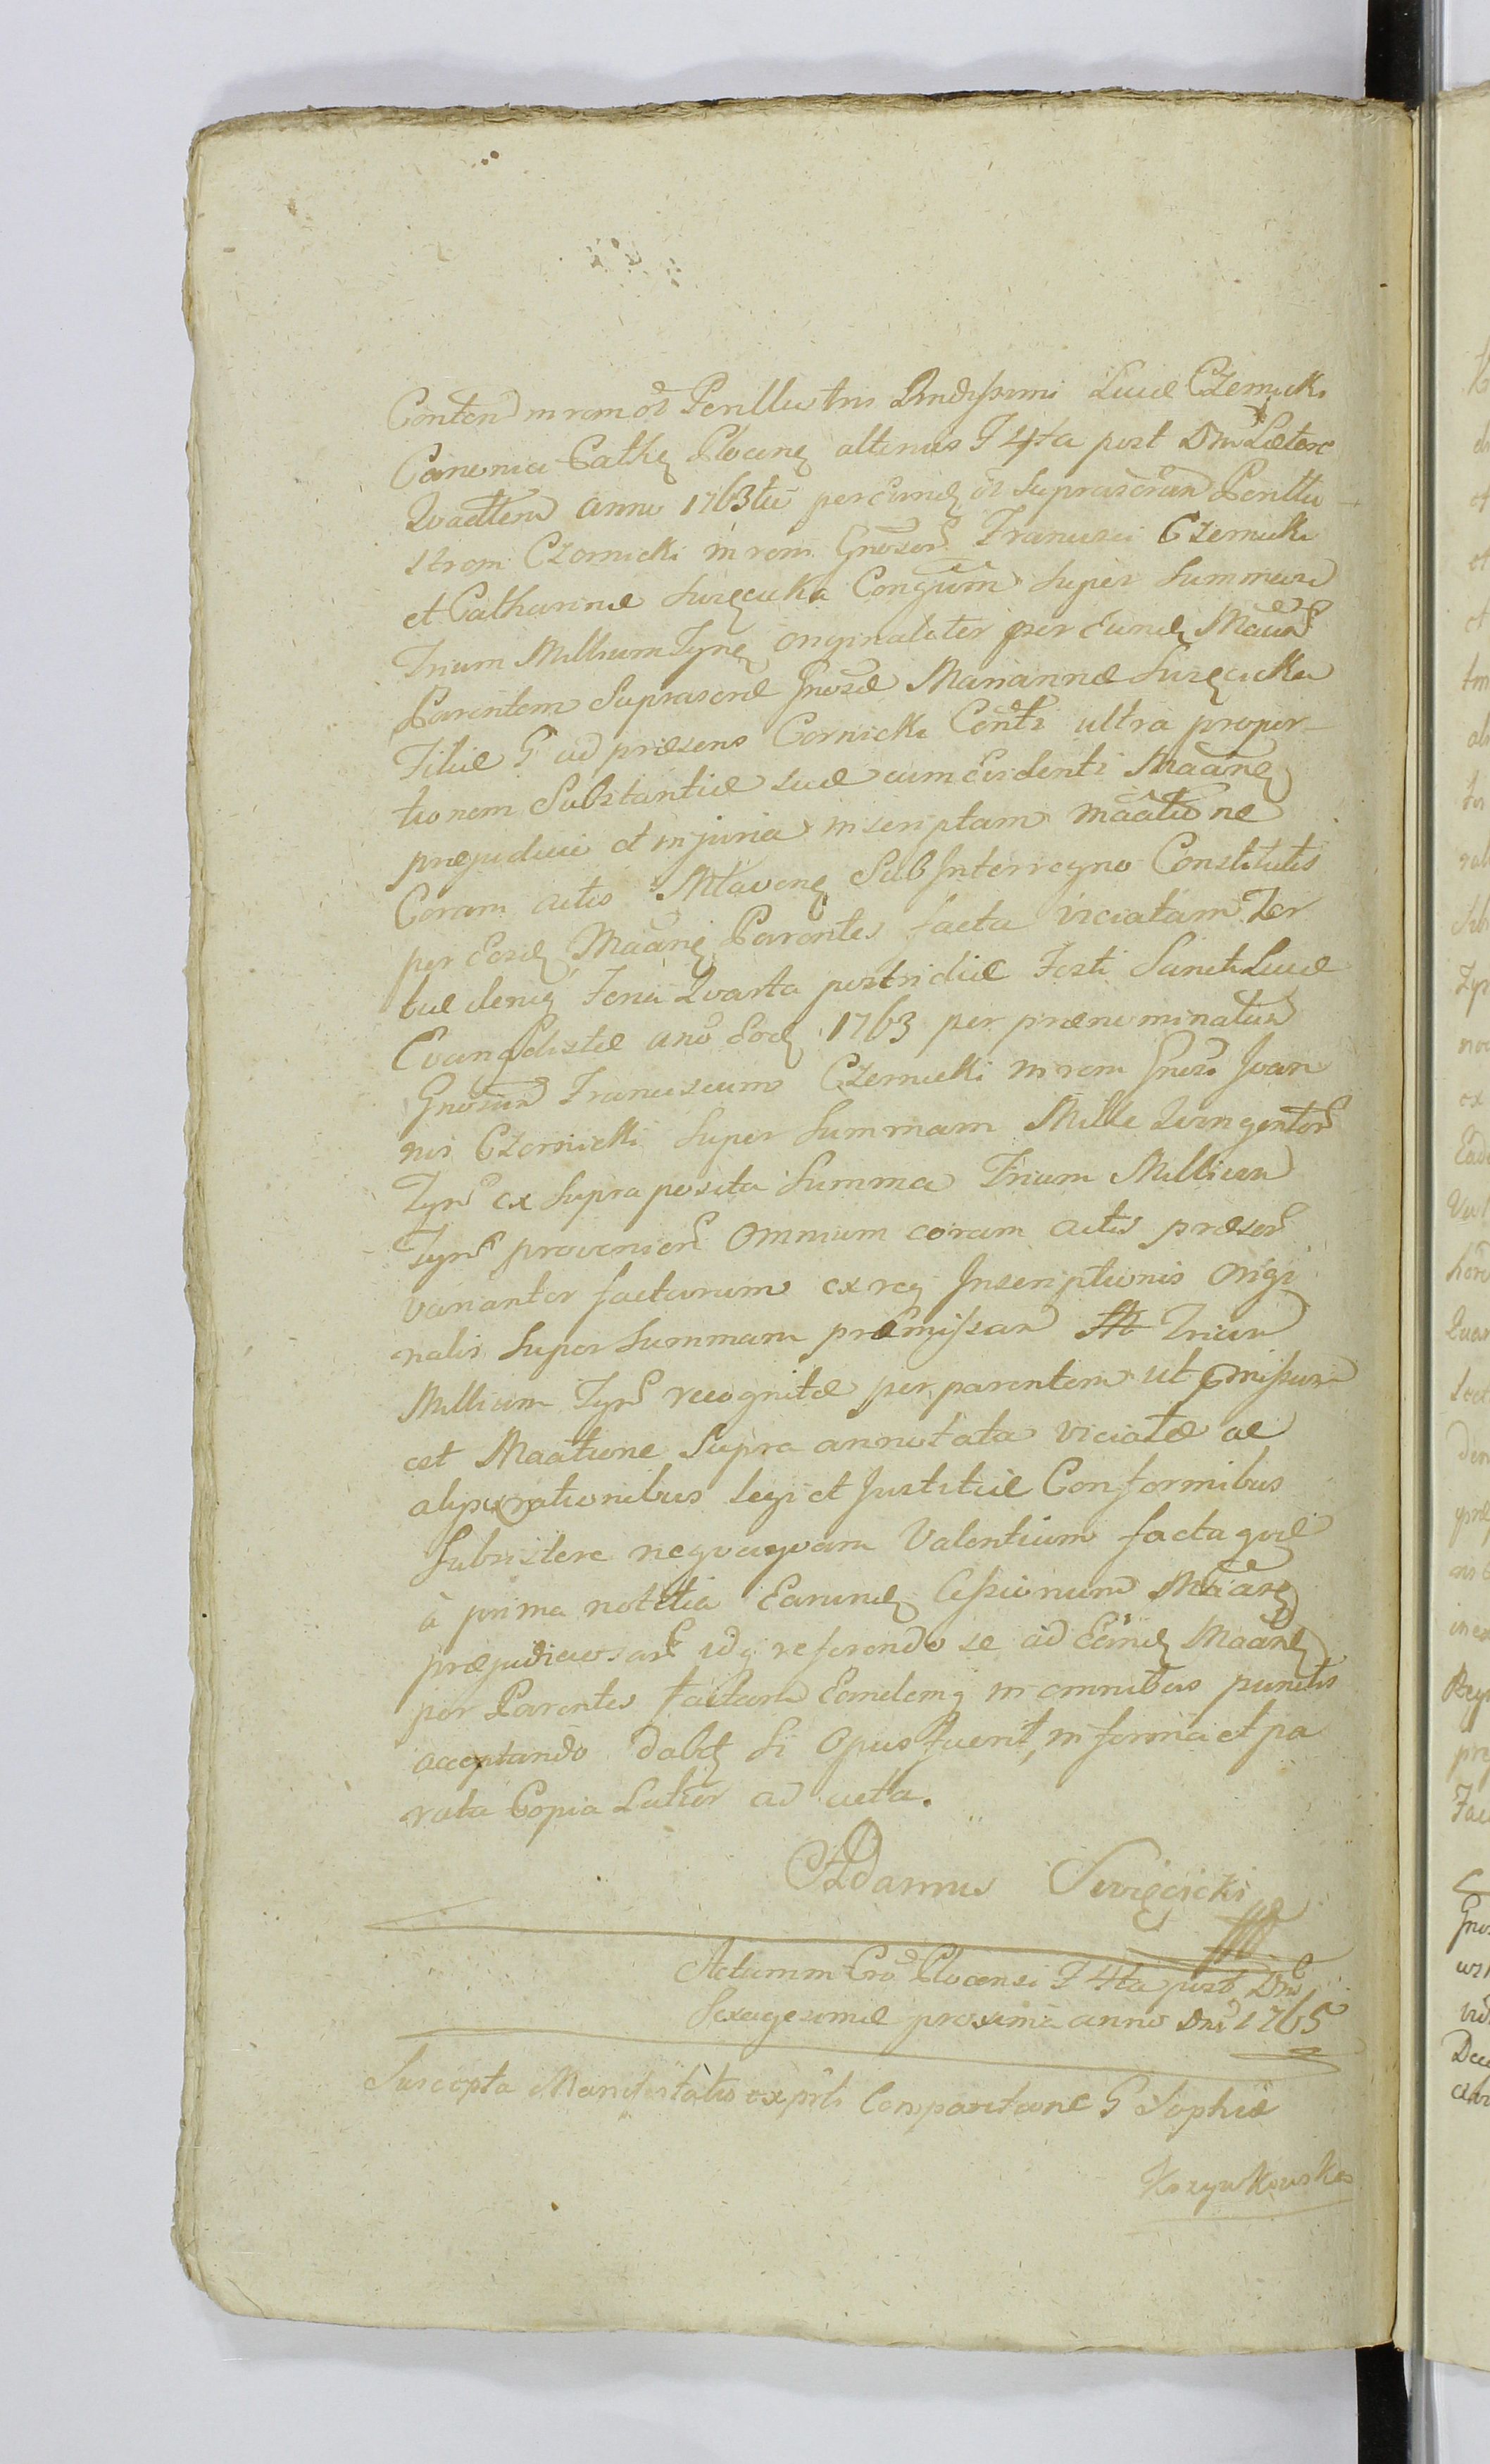 Conten in rem ol Perillustris Rndissimi Lucæ Czernicki
Canonici Cathę Plocenę alterius F 4ta post Dnicā Lætare
Quadten anno 1763tii per eundę ol suprascrān Perillu
strem Czernicki in rem Gnosor Francisci Czernicki
et Catharinæ Swięcicka Conjgum super summam
Trium Millium Tynf originaliter per eundę Maān
Parentem suprascræ Gnosæ Mariannæ Swięcicka
Filiæ G ad præsens Cornicki Conti ultra propor-
tionem Substantiæ suæ cum evidenti Maānę
præjudicio et injuria inscriptam maāōne
Coram actis Mlavenę Sub Interregno Constitutis
per Eosdę Maānę Parentes facta viciatam Ter
tiæ denię Feria Quarta postridiæ Festi Sancti Lucæ
Evangelistæ anō Eodę 1763 per prænominatum
Gnosum Franciscum Czernicki in rem Gnosi Joan
nis Czernicki super summam Mille Quingentor
Tynf ex supra posita summa Trium Millium
Tynf provenien omnium coram actis præsen
variantor factarum ex reg Inscriptionis Origi
nalis super summam præmissam Trium
Millium Tynf recognitæ per parentem ut præmissum
est Maātione supra annotata viciatæ ac
alijs rationibus legi et Justitiæ Conformibus
subsistere nequaquam Valentium facta quæ
à prima notitia Earundę Cessionum Maānę
præjudiciosar idq referendo se ad Eandę Maānę
per Parentes factam Eandemq in omnibus punctis
acceptando dabit si Opus fuerit, in forma et pa
rata Copia Latior ad acta.
Adamus Swięcicki
Actum in Cro Plocensi F 4ta post Dnicā
Sexagesimæ proxima anno Dni 1765
Suscepta Manifestatio ex prti Comparitione G Sophiæ
Krzywkowska